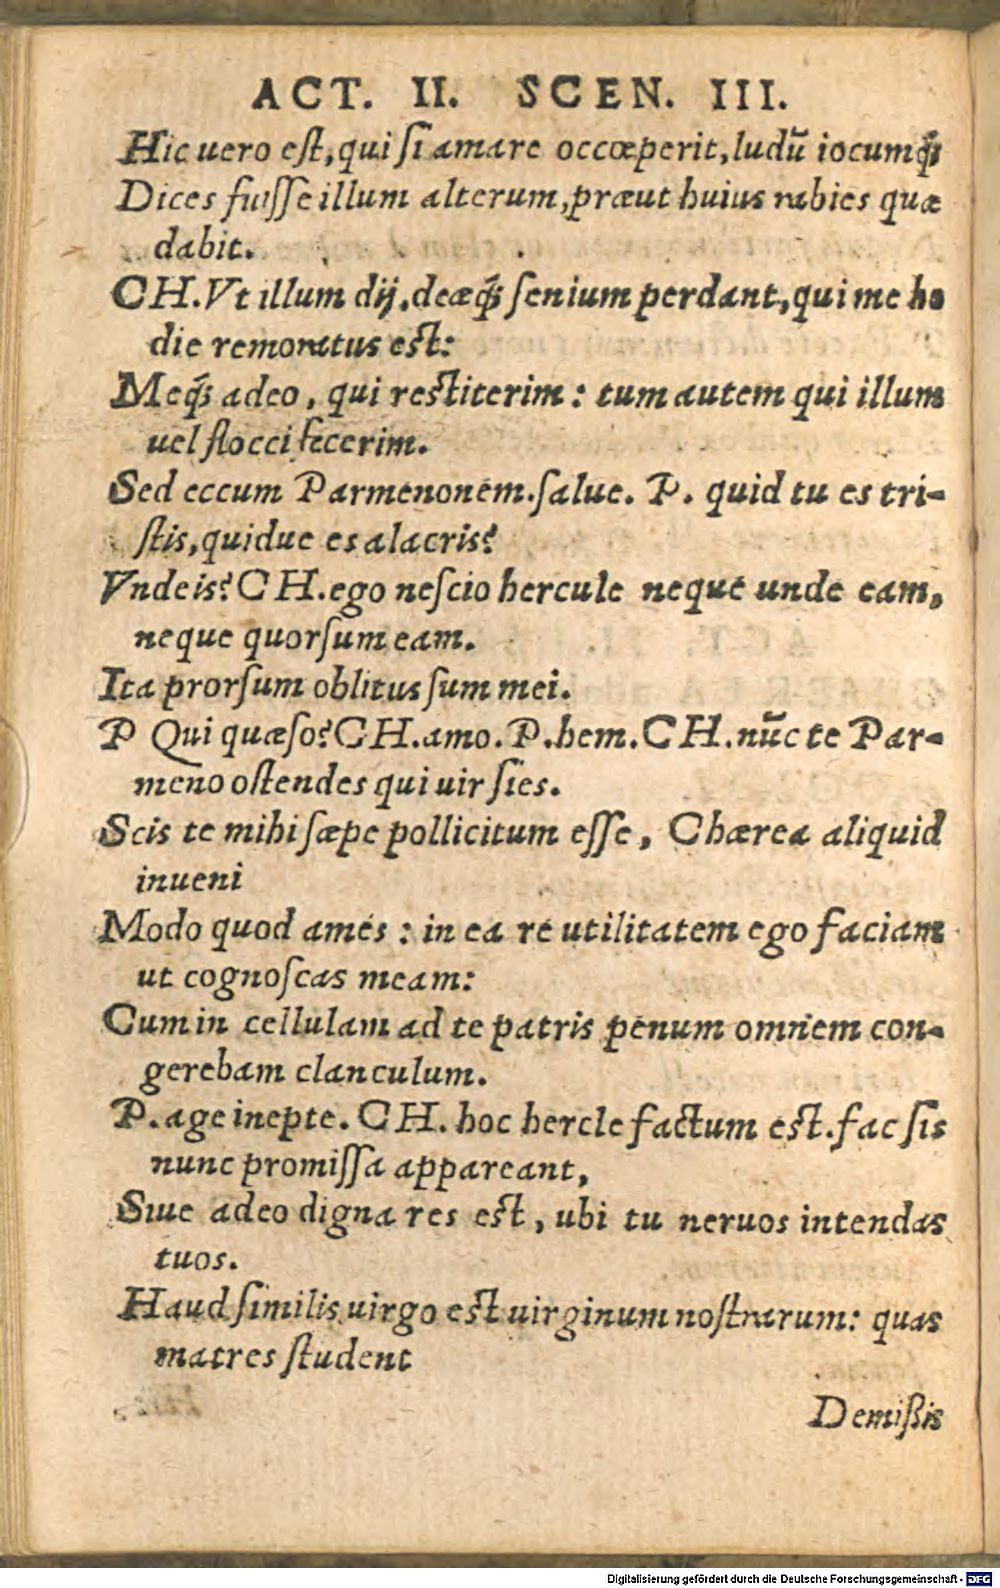 ACT. II. SCEN. III.
Hic uero est, qui si amare occœperit, ludū iocumq́;
Dices fuisse illum alterum, præut huius rabies quæ
dabit.
CH. Vt illum dij, deæq́; senium perdant, qui me ho
die remoratus est:
Meq́; adeo, qui restiterim: tum autem qui illum
uel flocci fecerim.
Sed eccum Parmenonem. salue. P. quid tu es tri-
stis, quidue es alacris?
Vnde is? CH. ego nescio hercule neque unde eam,
neque quorsum eam.
Ita prorsum oblitus sum mei.
P Qui quæso? CH. amo. P. hem. CH. nūc te Par-
meno ostendes qui uir sies.
Scis te mihi sæpe pollicitum esse, Chærea aliquid
inueni
Modo quod ames: in ea re utilitatem ego faciam
ut cognoscas meam:
Cum in cellulam ad te patris penum omnem con-
gerebam clanculum.
P. age inepte. CH. hoc hercle factum est. fac sis
nunc promissa appareant,
Siue adeo digna res est, ubi tu neruos intendas
tuos.
Haud similis uirgo est uirginum nostrarum: quas
matres student
Demißis
Digitalisierung gefördert durch die Deutsche Forschungsgemeinschaft - DFG